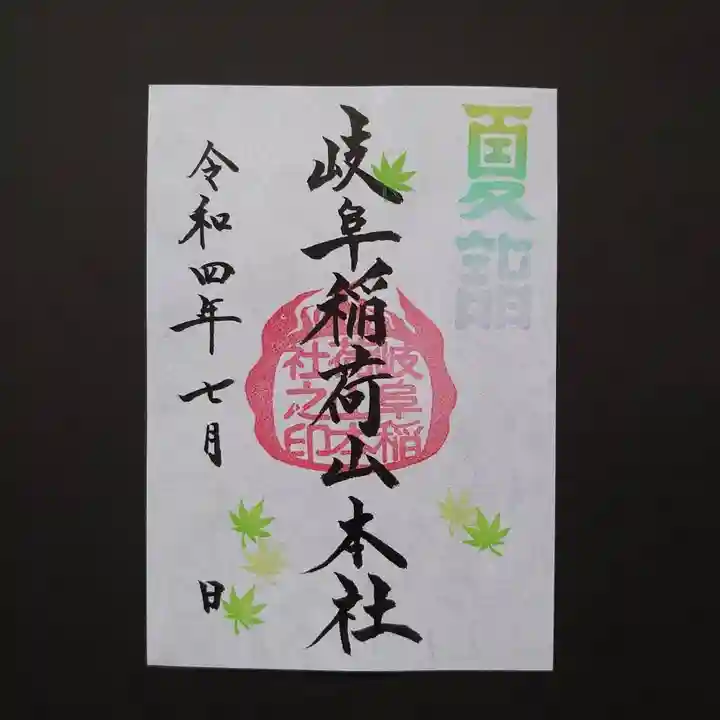 夏詣
岐阜稲荷山本社
岐阜稲
荷山本
社之印
令和四年七月 日